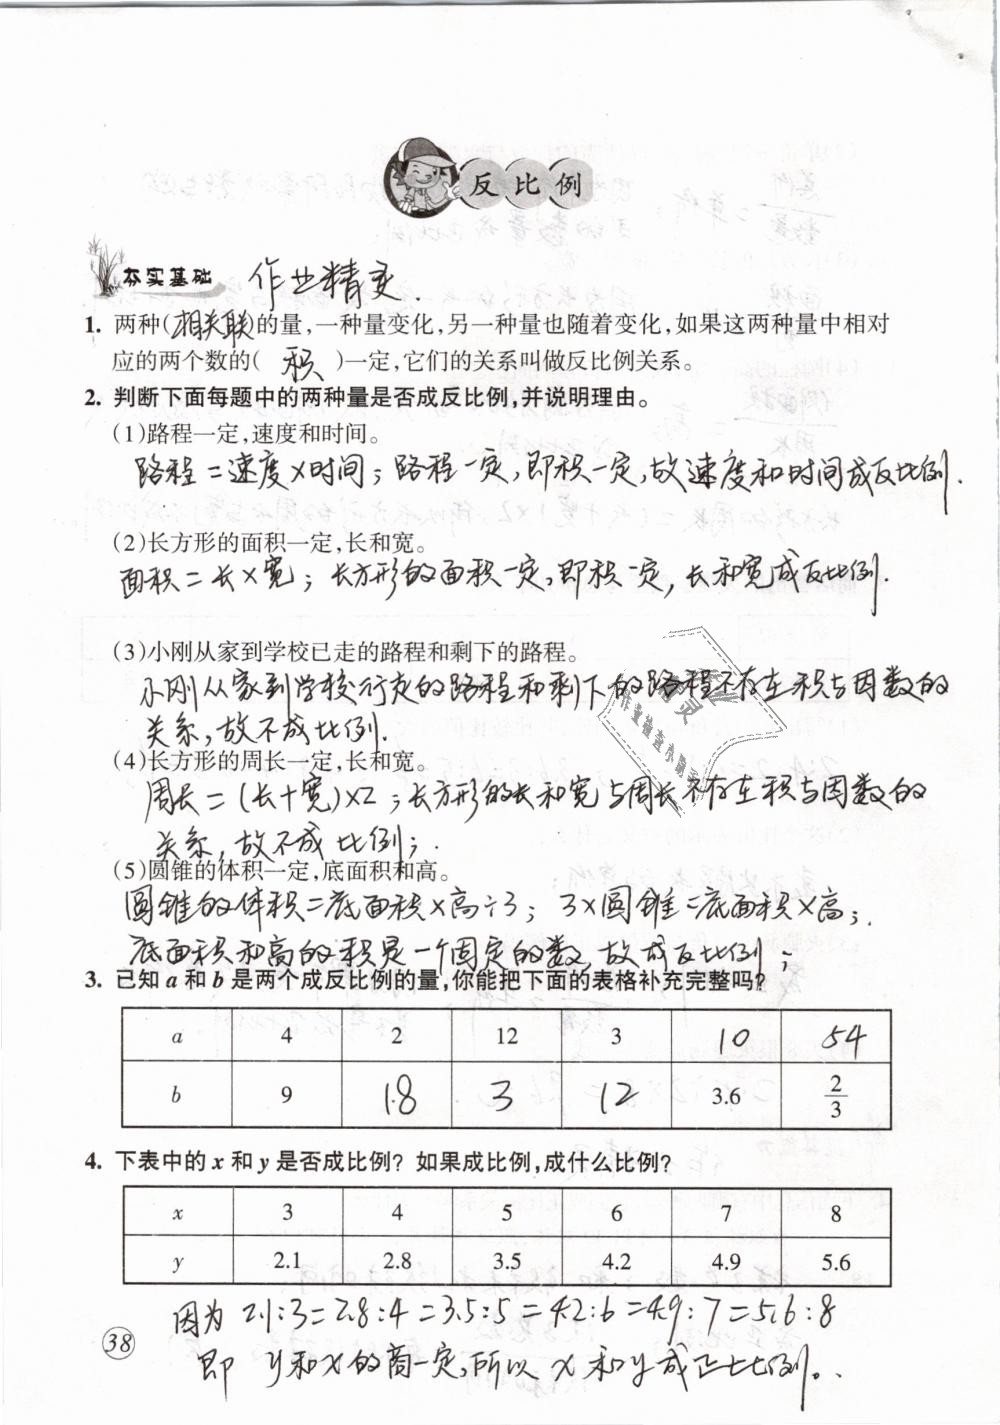 反比例
夯实基础 作业精灵.
1. 两种(相关联)的量,一种量变化,另一种量也随着变化,如果这两种量中相对
应的两个数的( 积 )一定,它们的关系叫做反比例关系。
2. 判断下面每题中的两种量是否成反比例,并说明理由。
(1)路程一定,速度和时间。
路程=速度×时间;路程一定,即积一定,故速度和时间成反比例.
(2)长方形的面积一定,长和宽。
面积=长×宽;长方形的面积一定,即积一定,长和宽成反比例.
(3)小刚从家到学校已走的路程和剩下的路程。
小刚从家到学校行走的路程和剩下的路程不存在积与因数的
关系,故不成比例.
(4)长方形的周长一定,长和宽。
周长=(长+宽)×2;长方形的长和宽与周长不存在积与因数的
关系,故不成比例;.
(5)圆锥的体积一定,底面积和高。
圆锥的体积=底面积×高÷3;3×圆锥=底面积×高;.
底面积和高的积是一个固定的数,故成反比例;
3. 已知a和b是两个成反比例的量,你能把下面的表格补充完整吗?
a 4 2 12 3 10 54
b 9 18 3 12 3.6 2/3
4. 下表中的x和y是否成比例?如果成比例,成什么比例?
x 3 4 5 6 7 8
y 2.1 2.8 3.5 4.2 4.9 5.6
因为2.1:3=2.8:4=3.5:5=4.2:6=4.9:7=5.6:8
即 y和x的商一定,所以 x和y成正比例。.
38
作业检查小助手